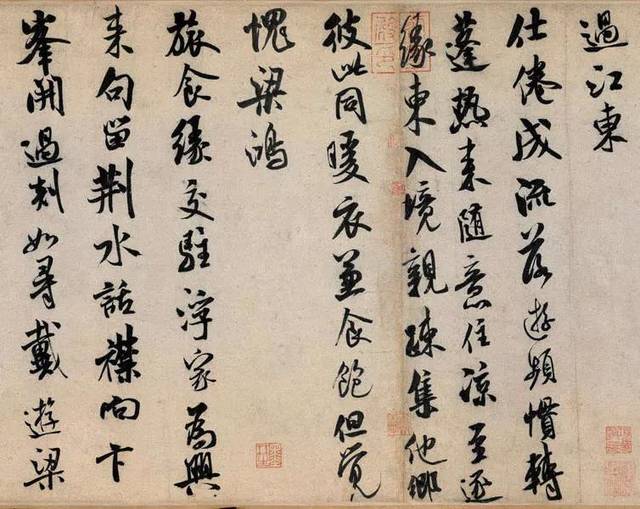 過江東
仕倦成流落遊頻慣轉
蓬熱来随意住凉至逐
緣東入境親疎集他鄉
彼此同暖衣兼食飽但覚
愧梁鴻
旅食緣交駐浮家為興
来句留荆水話襟向卞
峯開過剡如尋戴遊梁